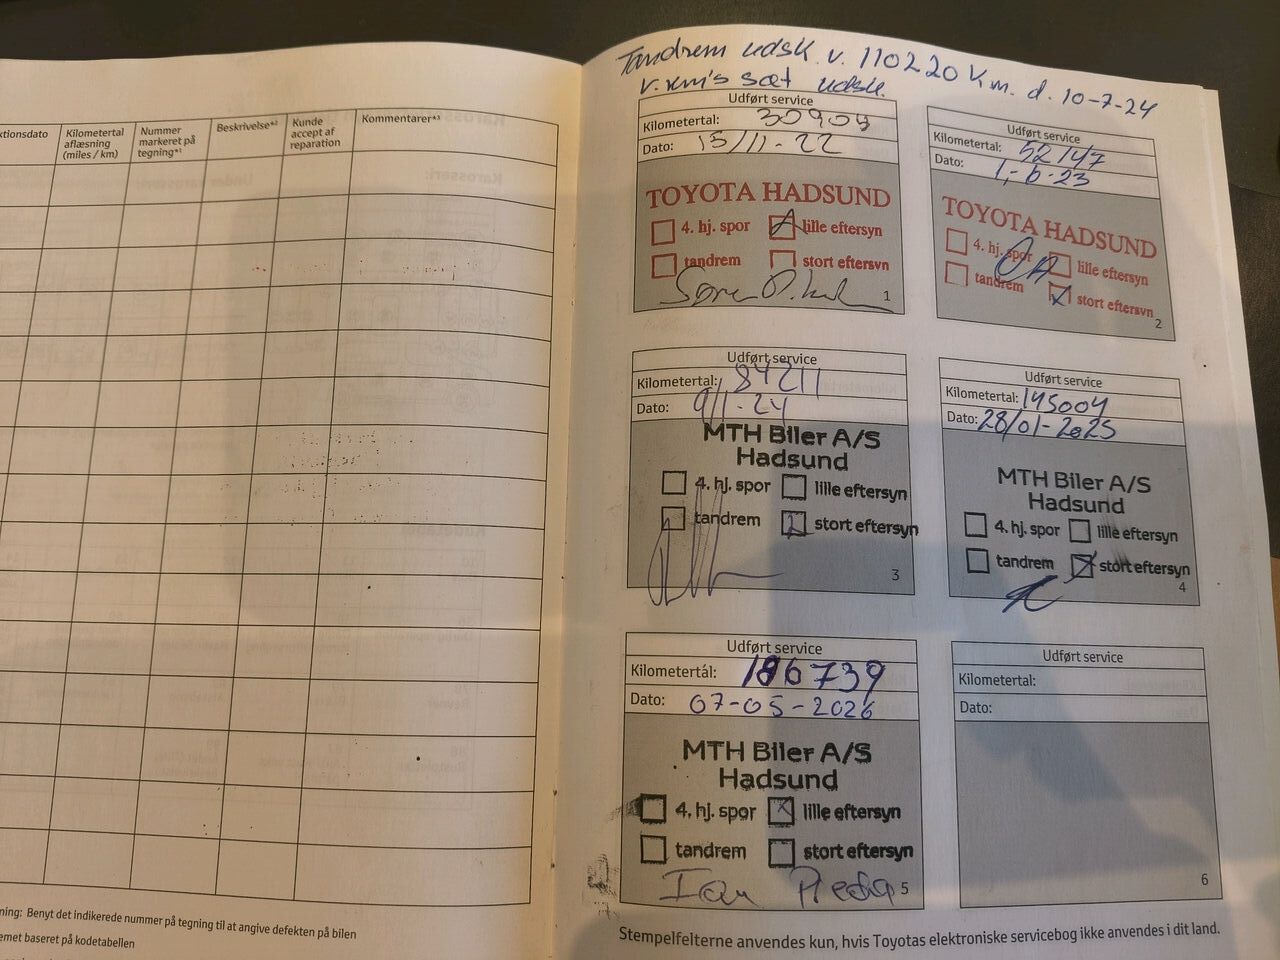 Tandrem udsk. v. 110220 Km. d. 10-7-24
sæt udsk.
ktionsdato
Kilometertal aflæsning (miles / km)
Nummer markeret på tegning*¹
Beskrivelse*²
Kunde accept af reparation
Kommentarer*³
ning: Benyt det indikerede nummer på tegning til at angive defekten på bilen
emet baseret på kodetabellen
Udført service
Kilometertal: 30909
Dato: 15/11-22
TOYOTA HADSUND
4. hj. spor lille eftersyn
tandrem stort eftersyn
1
Udført service
Kilometertal: 52147
Dato: 1,-6-23
TOYOTA HADSUND
4. hj. spor lille eftersyn
tandrem stort eftersyn
2
Udført service
Kilometertal: 84211
Dato: 9/1-24
MTH Biler A/S
Hadsund
4. hj. spor lille eftersyn
tandrem stort eftersyn
3
Udført service
Kilometertal: 145004
Dato: 28/01-2025
MTH Biler A/S
Hadsund
4. hj. spor lille eftersyn
tandrem stort eftersyn
4
Udført service
Kilometertal: 186739
Dato: 07-05-2026
MTH Biler A/S
Hadsund
4. hj. spor lille eftersyn
tandrem stort eftersyn
5
Udført service
Kilometertal:
Dato:
6
Stempelfelterne anvendes kun, hvis Toyotas elektroniske servicebog ikke anvendes i dit land.